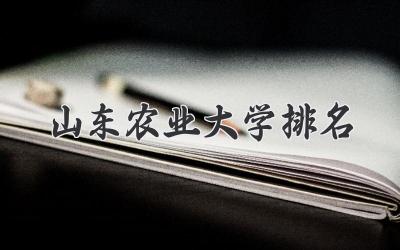 山东农业大学排名